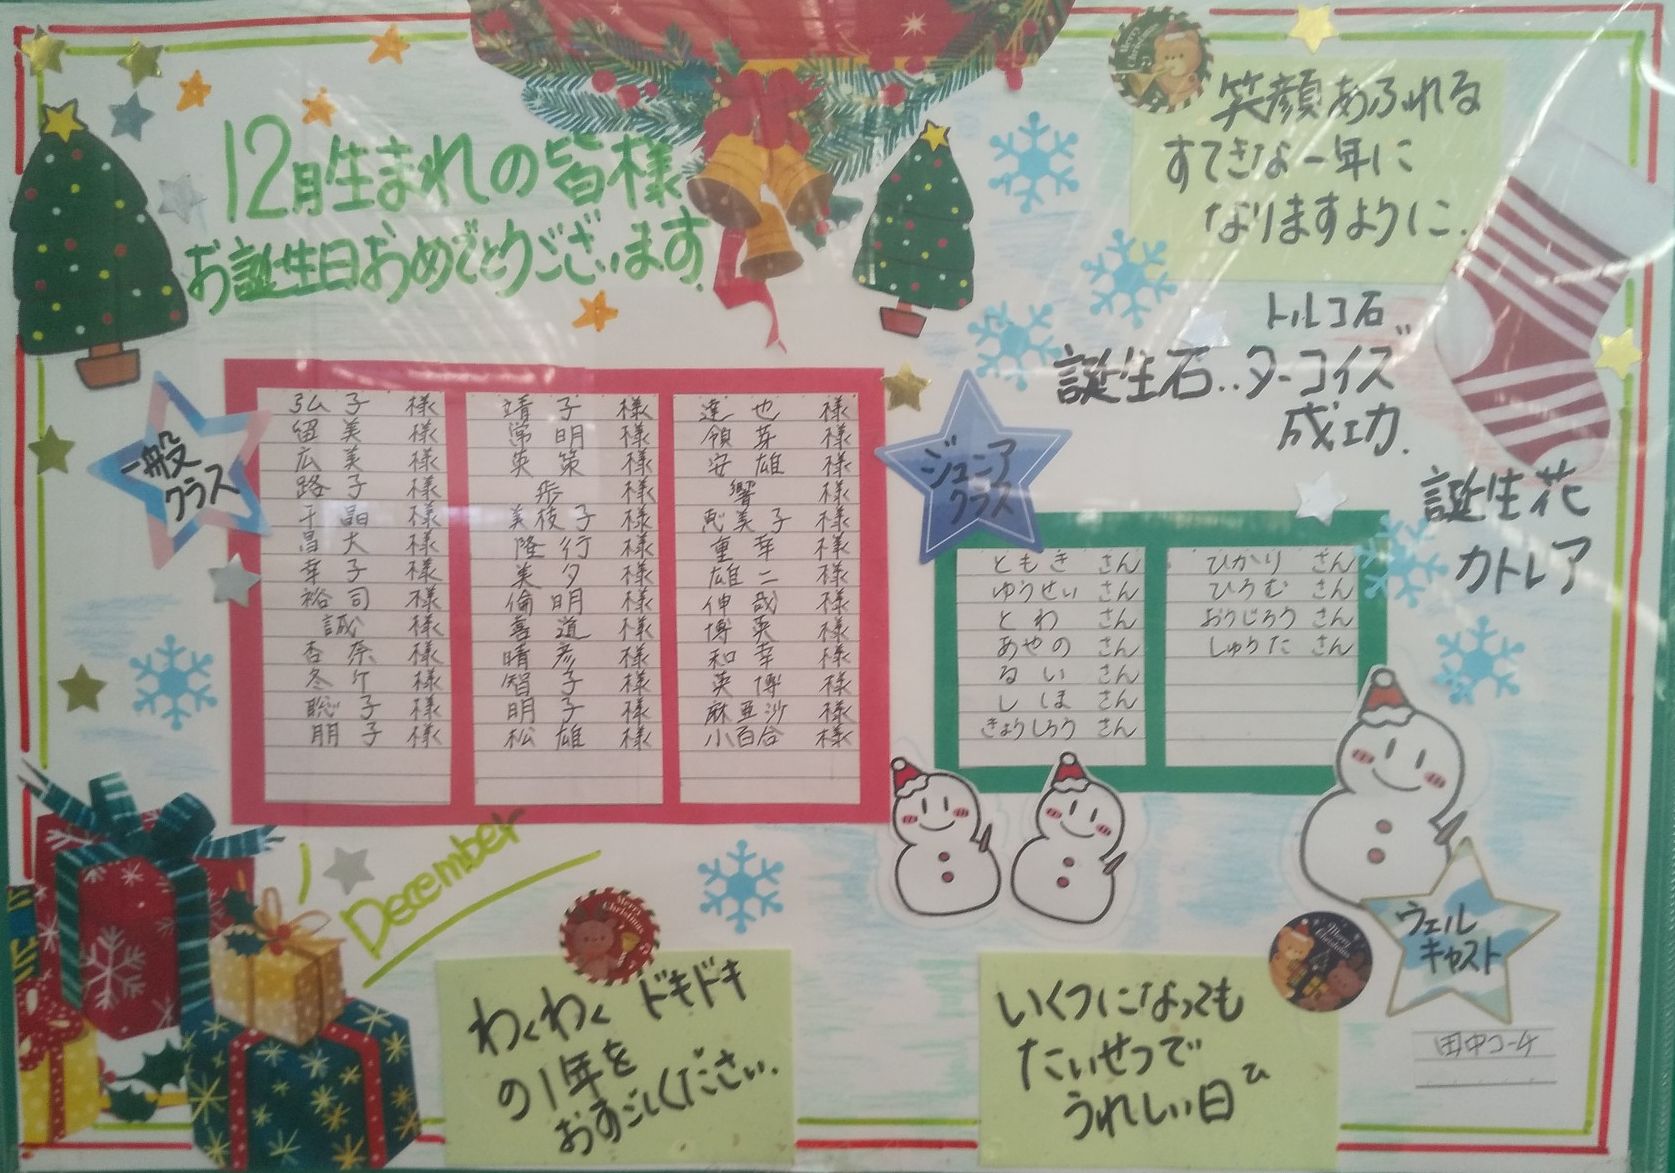 12月生まれの皆様
お誕生日おめでとうございます.
笑顔あふれる
すてきな一年に
なりますように.
トルコ石
誕生石‥ターコイズ
成功.
誕生花
カトレア
一般
クラス
弘子 様
留美 様
広美 様
路子 様
千晶 様
昌大 様
幸子 様
裕司 様
誠 様
杏奈 様
冬竹 様
聡子 様
朋子 様
靖子 様
常明 様
英策 様
歩 様
美枝子 様
隆行 様
美夕 様
倫明 様
喜道 様
晴彦 様
智子 様
明子 様
松雄 様
達也 様
領芽 様
安雄 様
響 様
恵美子 様
重幸 様
雄二 様
伸哉 様
博英 様
和幸 様
英博 様
麻亜沙 様
小百合 様
ジュニア
クラス
ともき さん
ゆうせい さん
とわ さん
あやの さん
るい さん
しほ さん
きょうしろう さん
ひかり さん
ひろむ さん
おうじろう さん
しゅうた さん
December
わくわく ドキドキ
の1年を
おすごしください.
いくつになっても
たいせつで
うれしい日
ウェル
キャスト
田中コーチ
Merry
Christmas
Merry
Christmas
Merry
Christmas